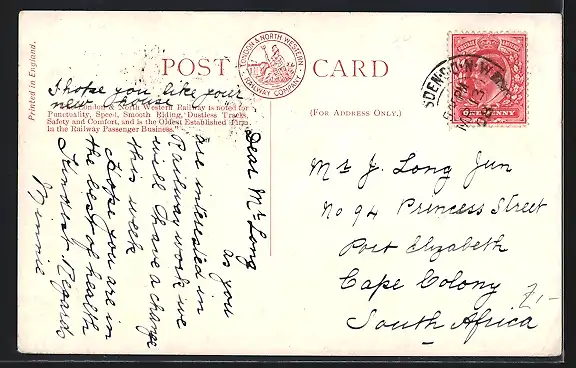 Printed in England.
POST CARD
LONDON & NORTH WESTERN
RAILWAY COMPANY
I hope you like your
new house
London & North Western Railway is noted for
Punctuality, Speed, Smooth Riding, Dustless Tracks,
Safety and Comfort, and is the Oldest Established Firm
in the Railway Passenger Business."
(FOR ADDRESS ONLY.)
Dear Mr Long
as you
are interested in
Railway work we
will have a change
this week
Hope you are in
the best of health
Kindest Regards
Minnie
Mr J. Long Jun
No 94 Princess Street
Port Elizabeth
Cape Colony
South Africa
2,-
ONE PENNY